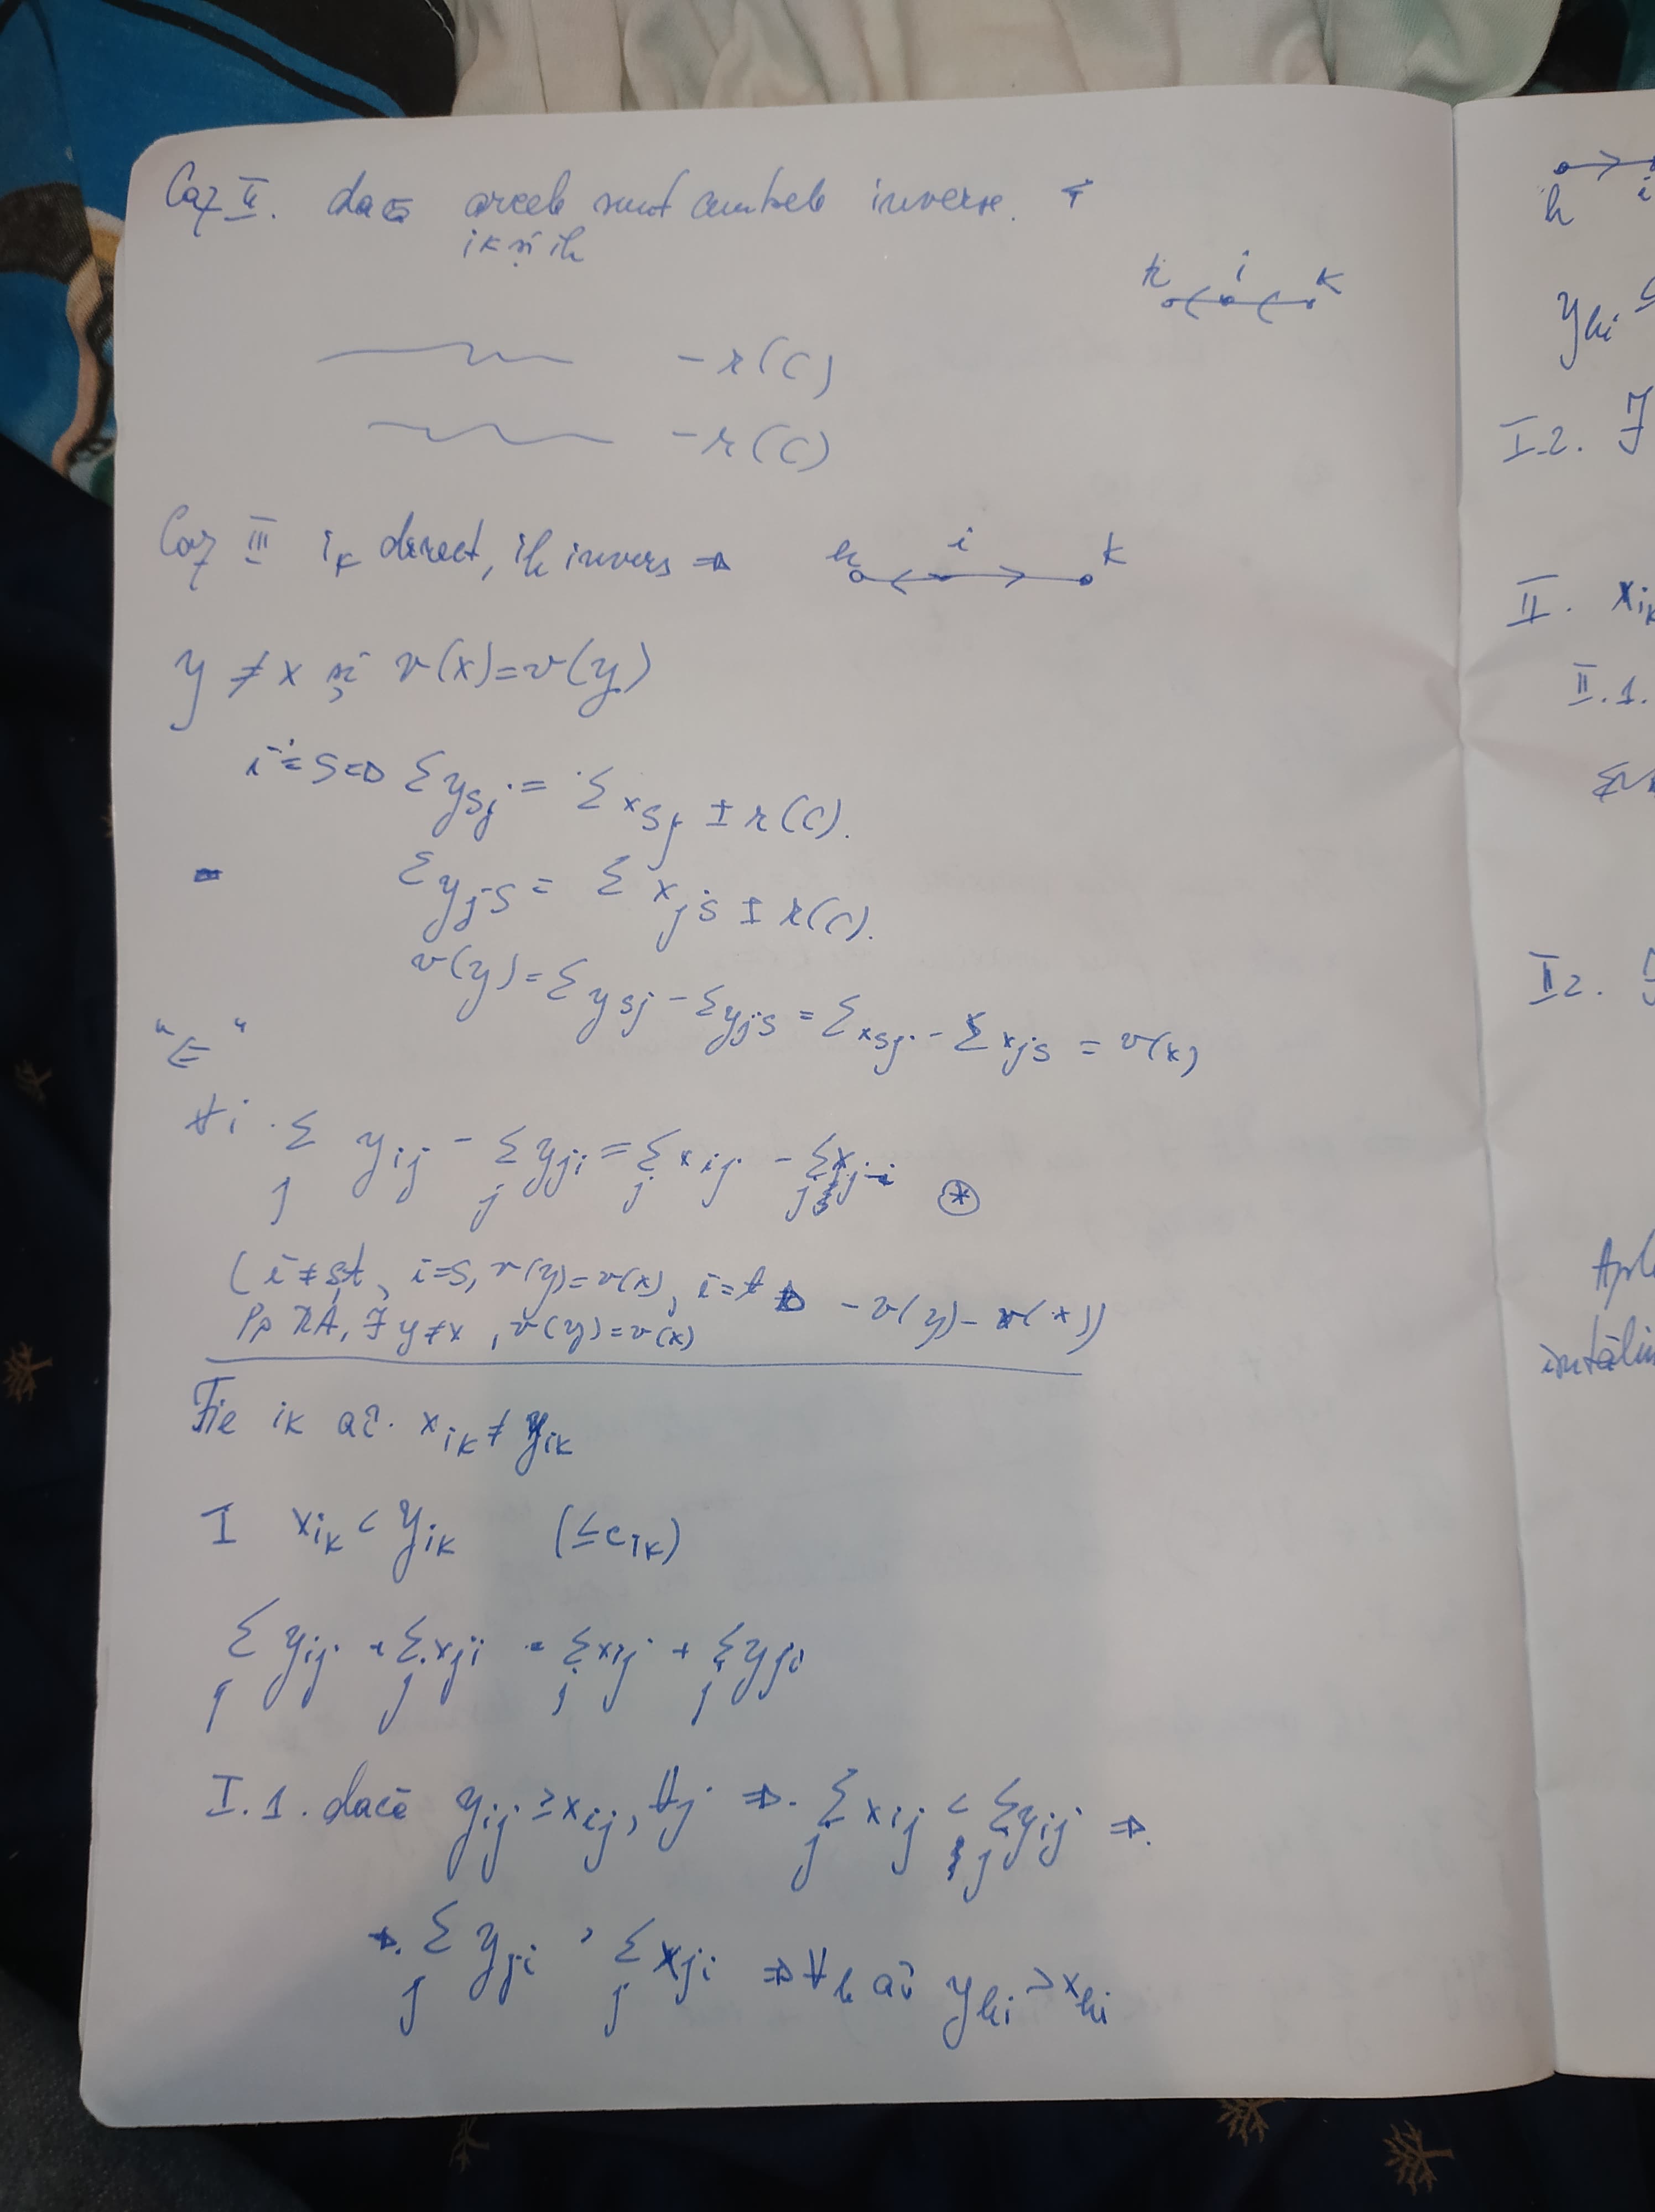 Caz II. dacă arcele sunt ambele inverse.
ik și ih
h i k
- r(C)
- r(C)
Caz III ik direct, ih invers ⇒ h i k
y ≠ x și v(x)=v(y)
i=s ⇒ Σ y_sj = Σ x_sj ± r(C).
- Σ y_js = Σ x_js ± r(C).
v(y) = Σ y_sj - Σ y_js = Σ x_sj - Σ x_js = v(x)
"⇐"
∀i Σ_j y_ij - Σ_j y_ji = Σ_j x_ij - Σ_j x_ji ⊛
(i≠s,t, i=s, v(y)=v(x), i=t ⇒ -v(y)-v(x))
Pp RA, ∃ y≠x, v(y)=v(x)
Fie ik aî. x_ik ≠ y_ik
I x_ik < y_ik (≤c_ik)
Σ_j y_ij + Σ_j x_ji = Σ_j x_ij + Σ_j y_ji
I.1. dacă y_ij ≥ x_ij, ∀j ⇒ Σ_j x_ij < Σ_j y_ij ⇒
⇒ Σ_j y_ji > Σ_j x_ji ⇒ ∀h aî y_hi > x_hi
h i
y_hi
I.2. ∃
II. x_ik
II.1.
II2.
Apl
întâlni